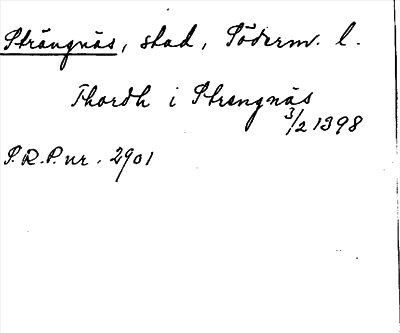 Strängnäs, stad, Söderm. l.
Thordh i Strengnäs
3/2 1398
S.R.P. nr. 2901